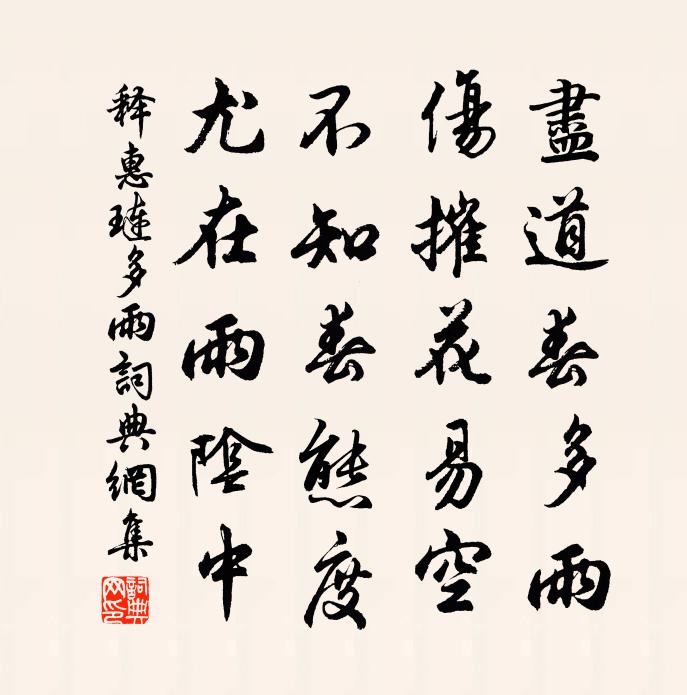 盡道春多雨
傷摧花易空
不知春態度
尤在雨陰中
释惠璉多雨詞典網集
詞典網印